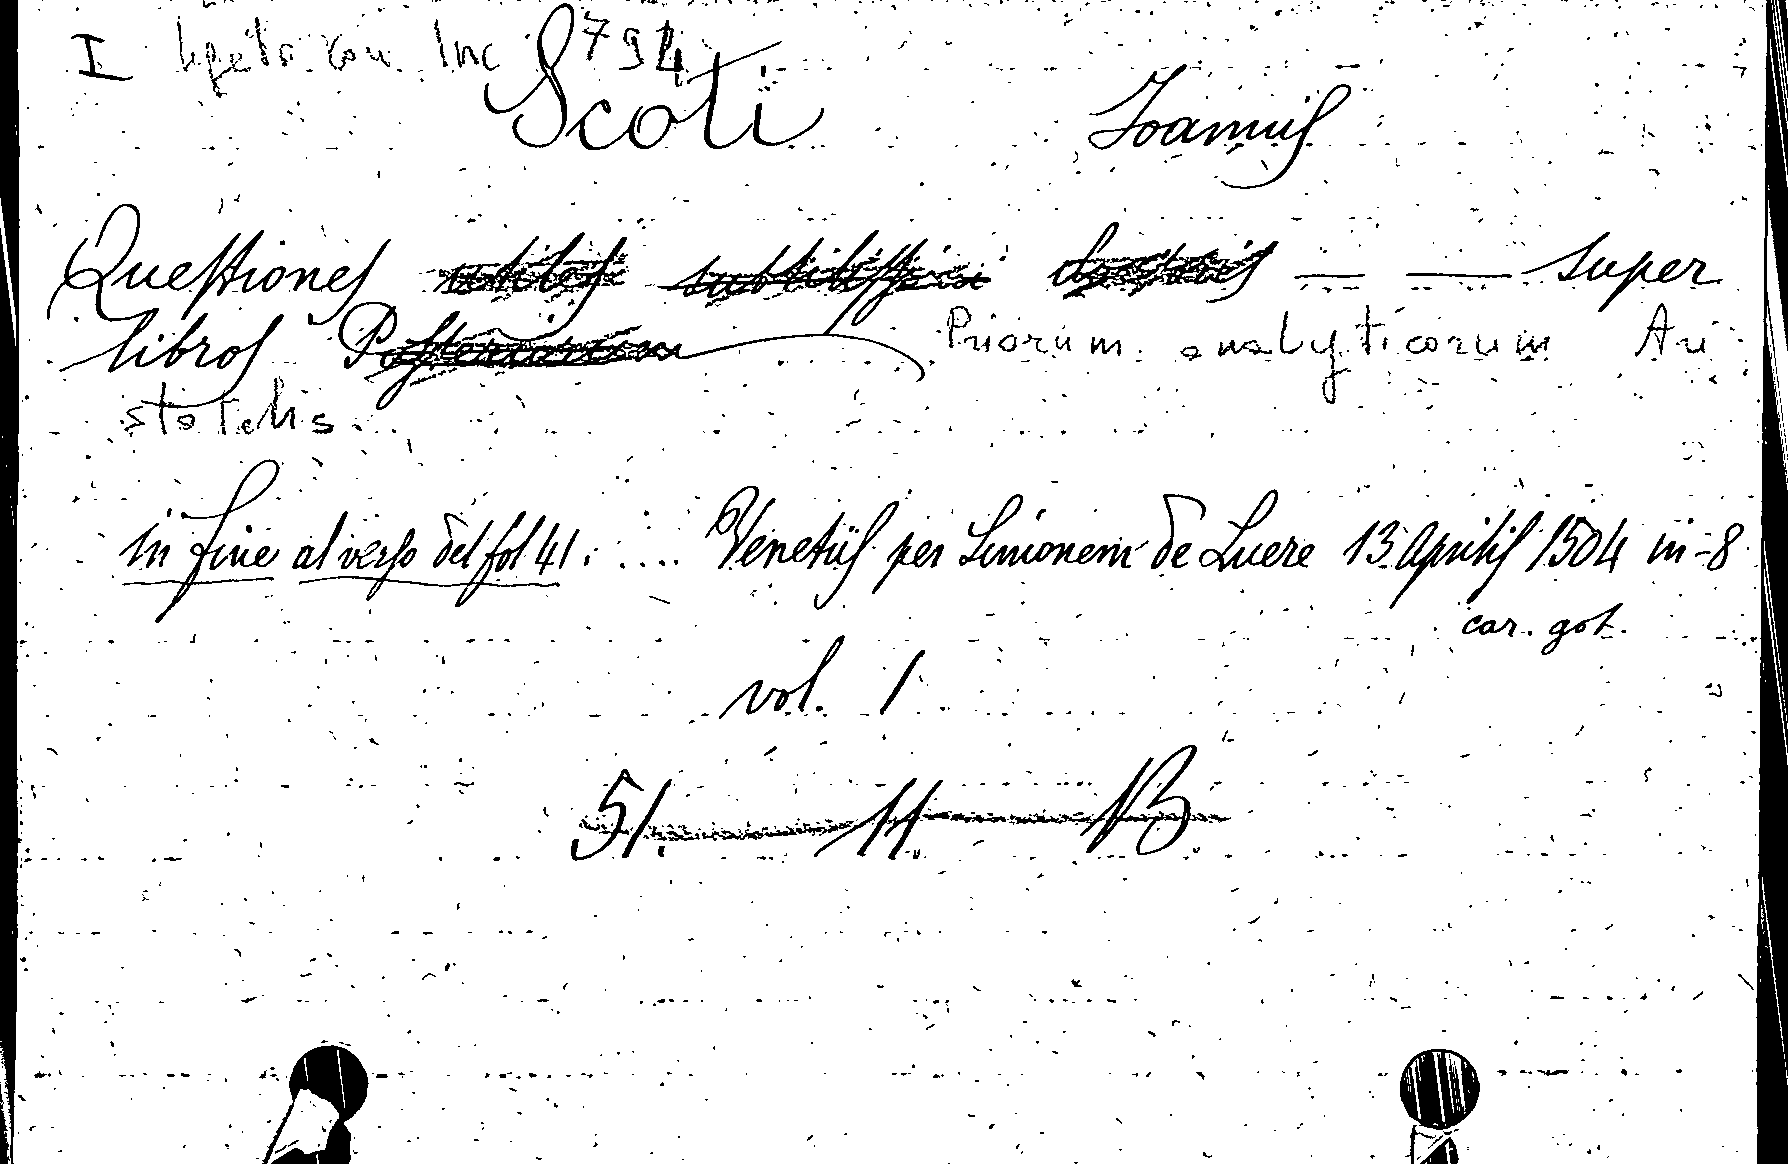 I legato con Inc 794
Scoti Joannis
Questiones utiles subtilissimi doctoris — — super
libros Posteriorum Priorum analyticorum Ari
stotelis.
in fine al verso del fol 41: .... Venetiis per Simonem de Luere 13 Aprilis 1504 in-8
car. got.
vol. 1
51. 11. B